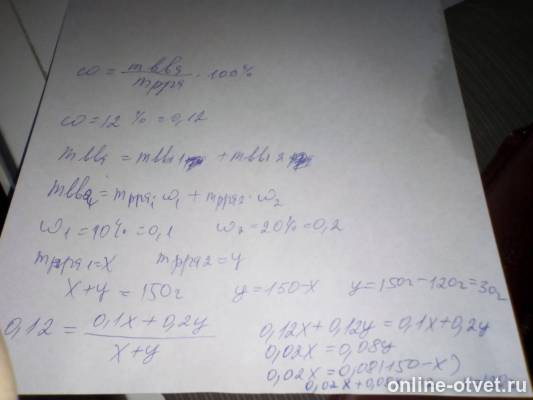 ω = mвва / mрра · 100%
ω = 12% = 0,12
mвва = mвв1 + mвв2
mвва = mрра₁ · ω₁ + mрра₂ · ω₂
ω₁ = 10% = 0,1 ω₂ = 20% = 0,2
mрра1 = x mрра2 = y
x + y = 150г y = 150 - x y = 150г - 120г = 30г
0,12 = 0,1x + 0,2y / x + y
0,12x + 0,12y = 0,1x + 0,2y
0,02x = 0,08y
0,02x = 0,08(150 - x)
0,02x + 0,08
online-otvet.ru